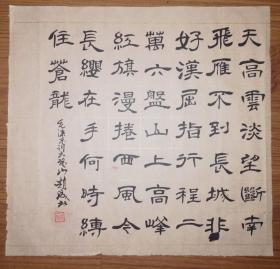 天高雲淡望斷南
飛雁不到長城非
好漢屈指行程二
萬六盤山上高峰
紅旗漫捲西風今
長纓在手何時縛
住蒼龍
毛澤東詞六盤山